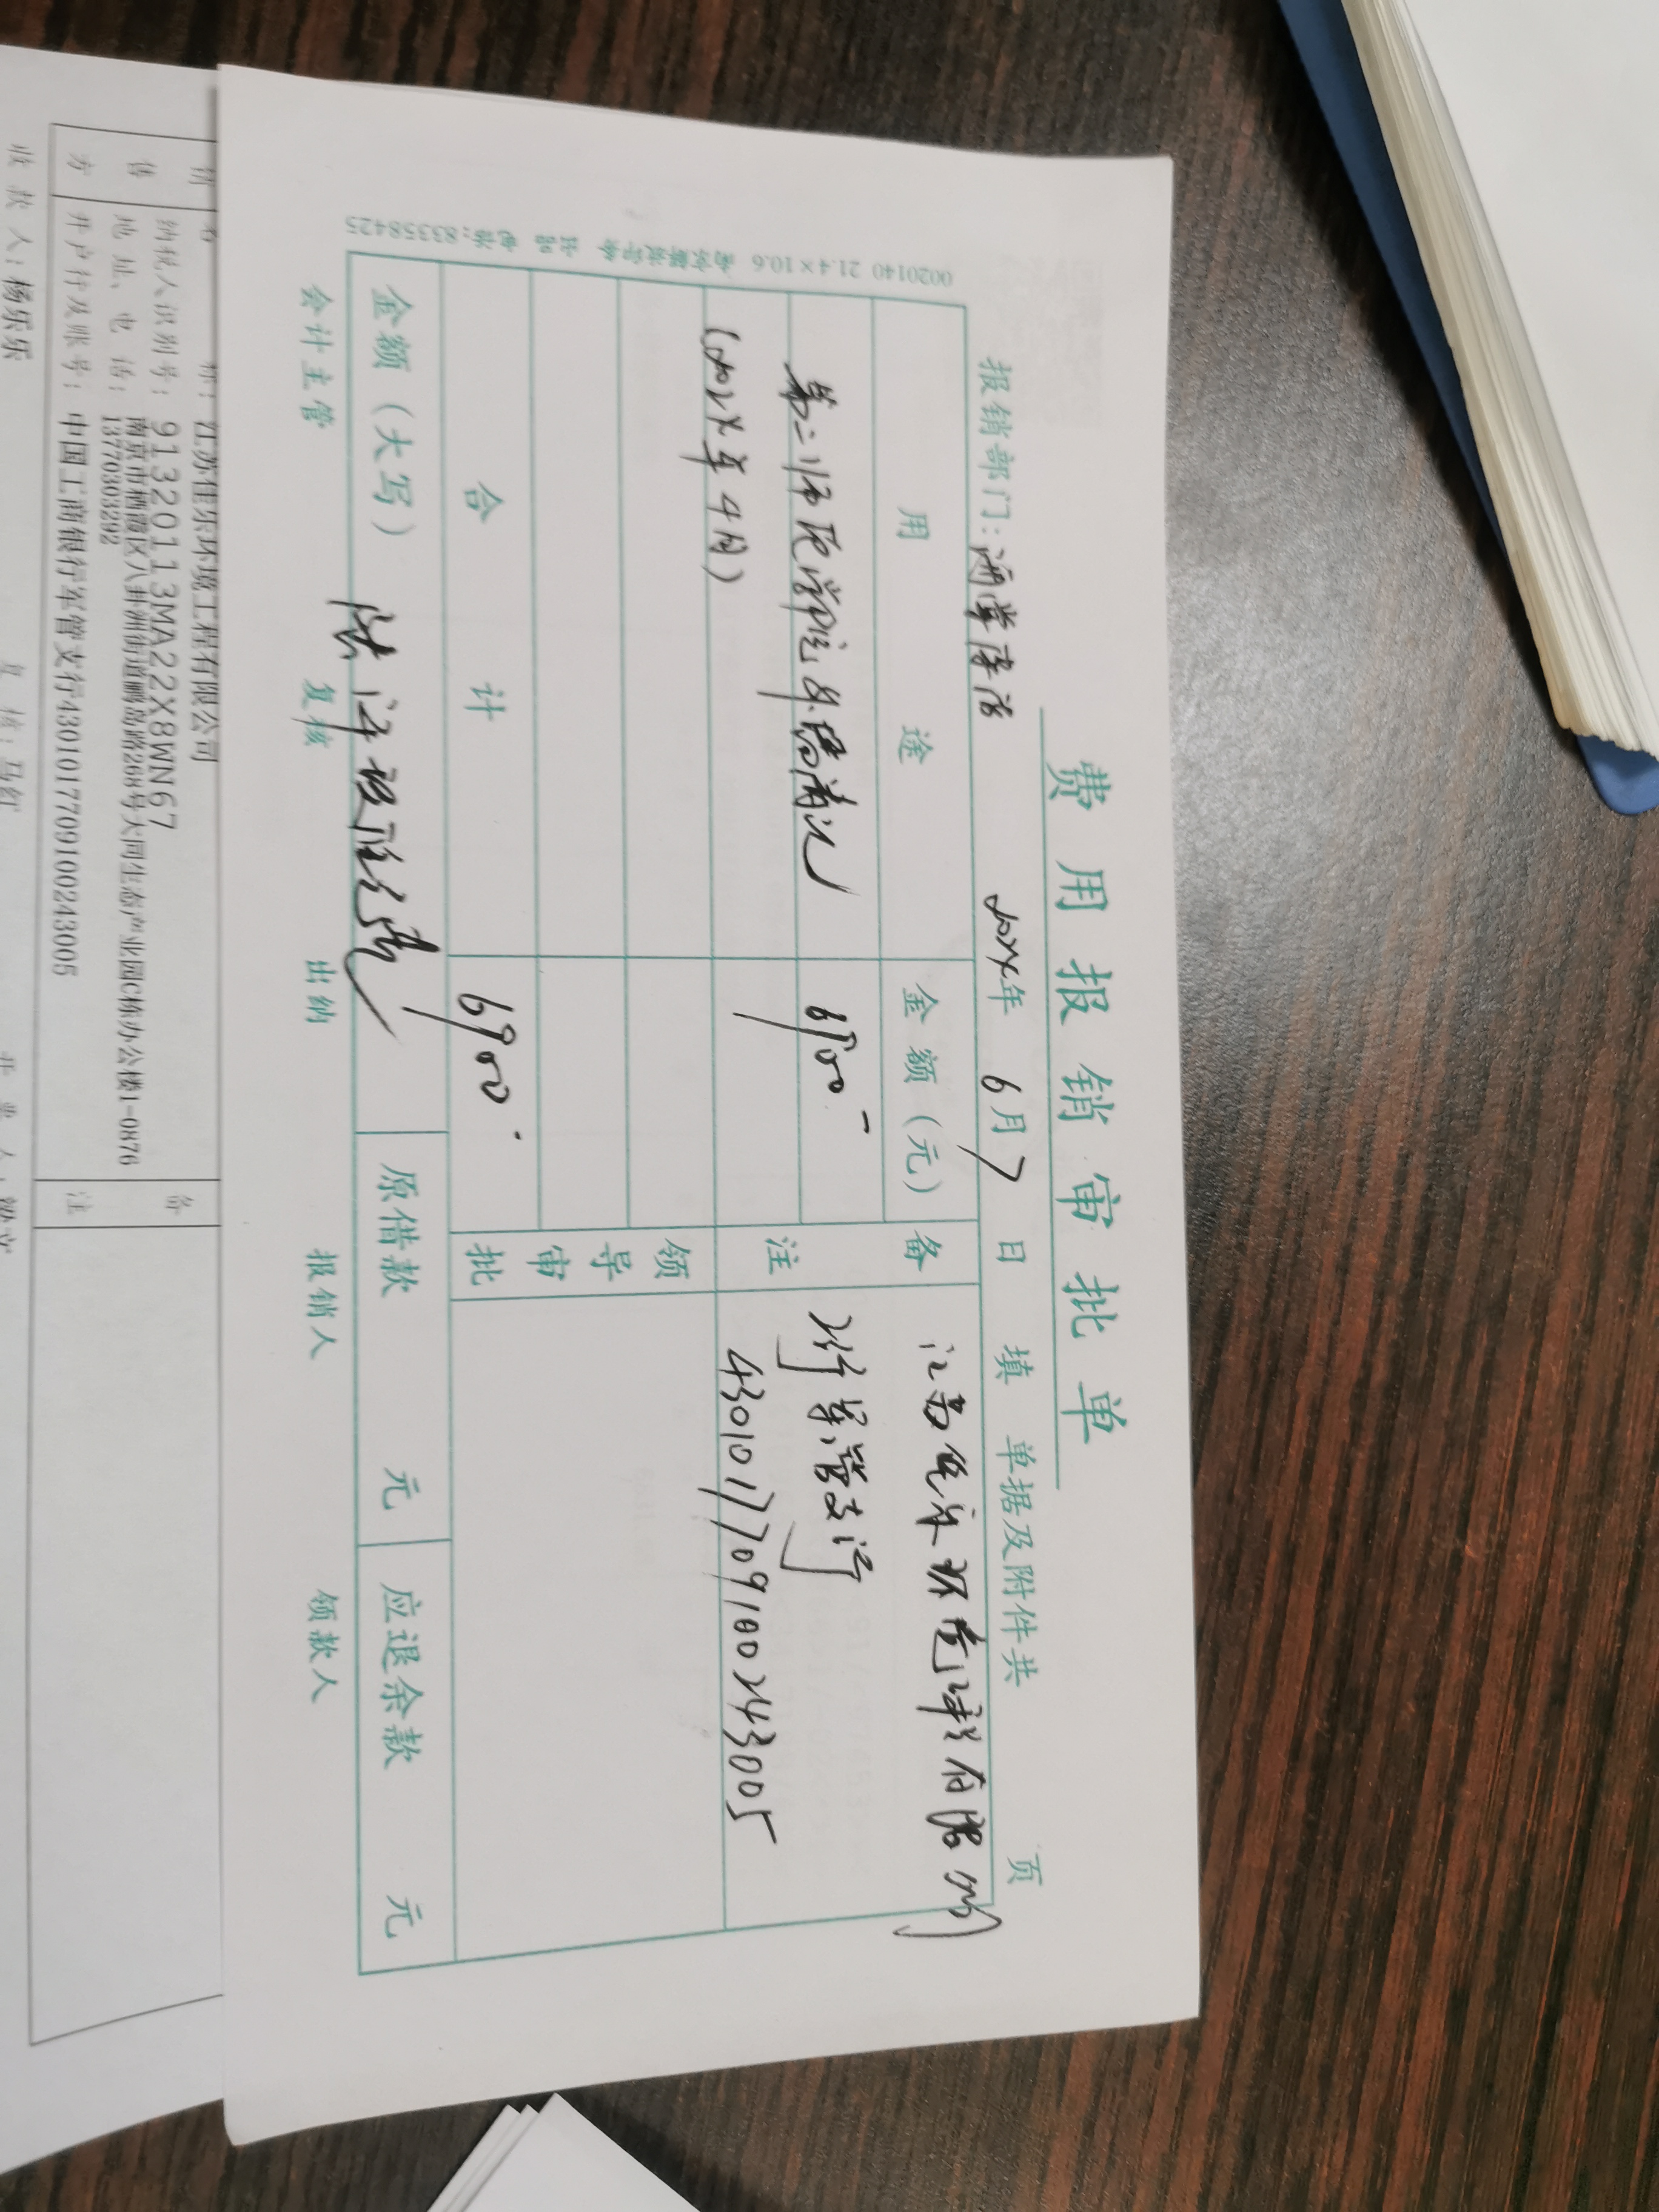 费用报销审批单
报销部门： 年 6月7日 填 单据及附件共 页
用途 金额（元） 备注 江苏佳乐环境工程有限公司
第二师范学院外墙清洗 6900 工行军管支行
4301017709100243005
领导审批
合计 6900
金额（大写） 陆仟玖佰元整 原借款 元 应退余款 元
会计主管 复核 出纳 报销人 领款人
0020140 21.4×10.6 电话：83358425
称：江苏佳乐环境工程有限公司
纳税人识别号：91320113MA22X8WN67
地址、电话：南京市栖霞区八卦洲街道鹂岛路268号大同生态产业园C栋办公楼1-0876
13770303292
开户行及账号：中国工商银行军管支行4301017709100243005
备注
收款人：杨乐乐 复核：马红